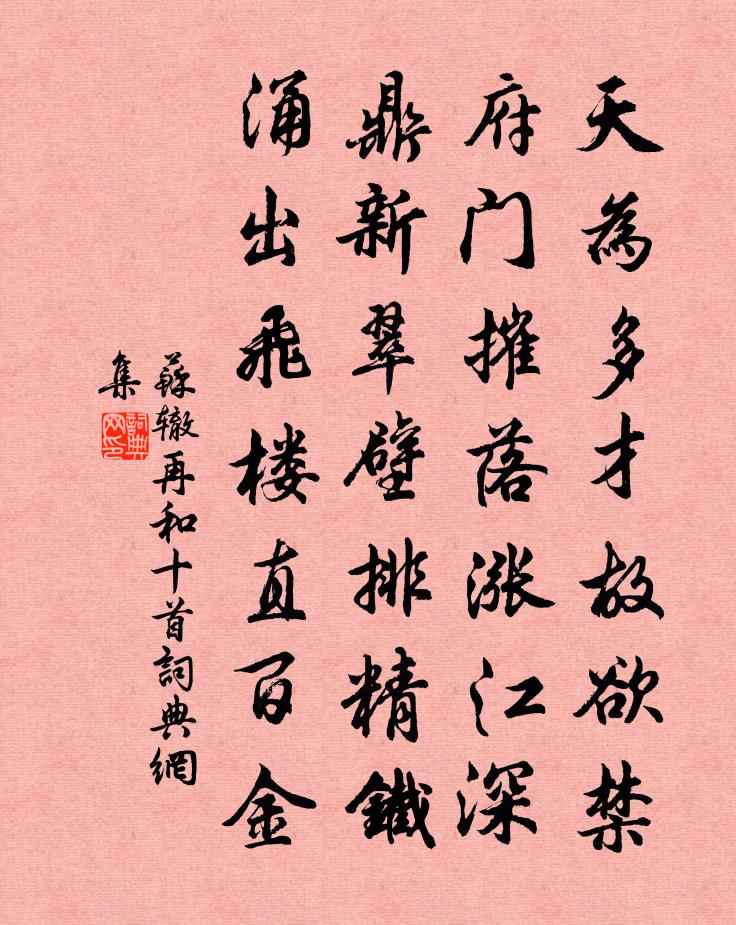 天為多才故欲禁
府门摧落涨江深
鼎新翠壁排精鐵
涌出飛楼直百金
蘇辙再和十首詞典網
集
詞典
网印